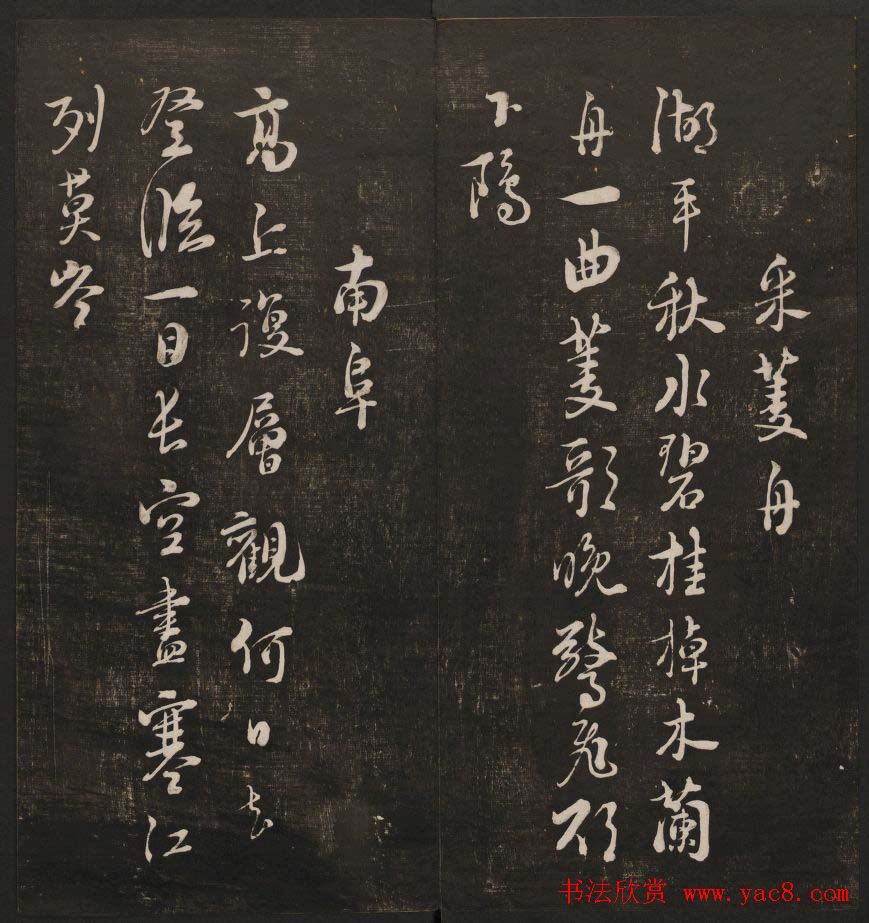 采菱舟
湖平秋水碧桂棹木蘭
舟一曲菱歌晚驚飛欲
下鷗
南阜
高丘復層觀何日去
登臨一目長空盡寒江
列莫岑
书法欣赏 www.yac8.com